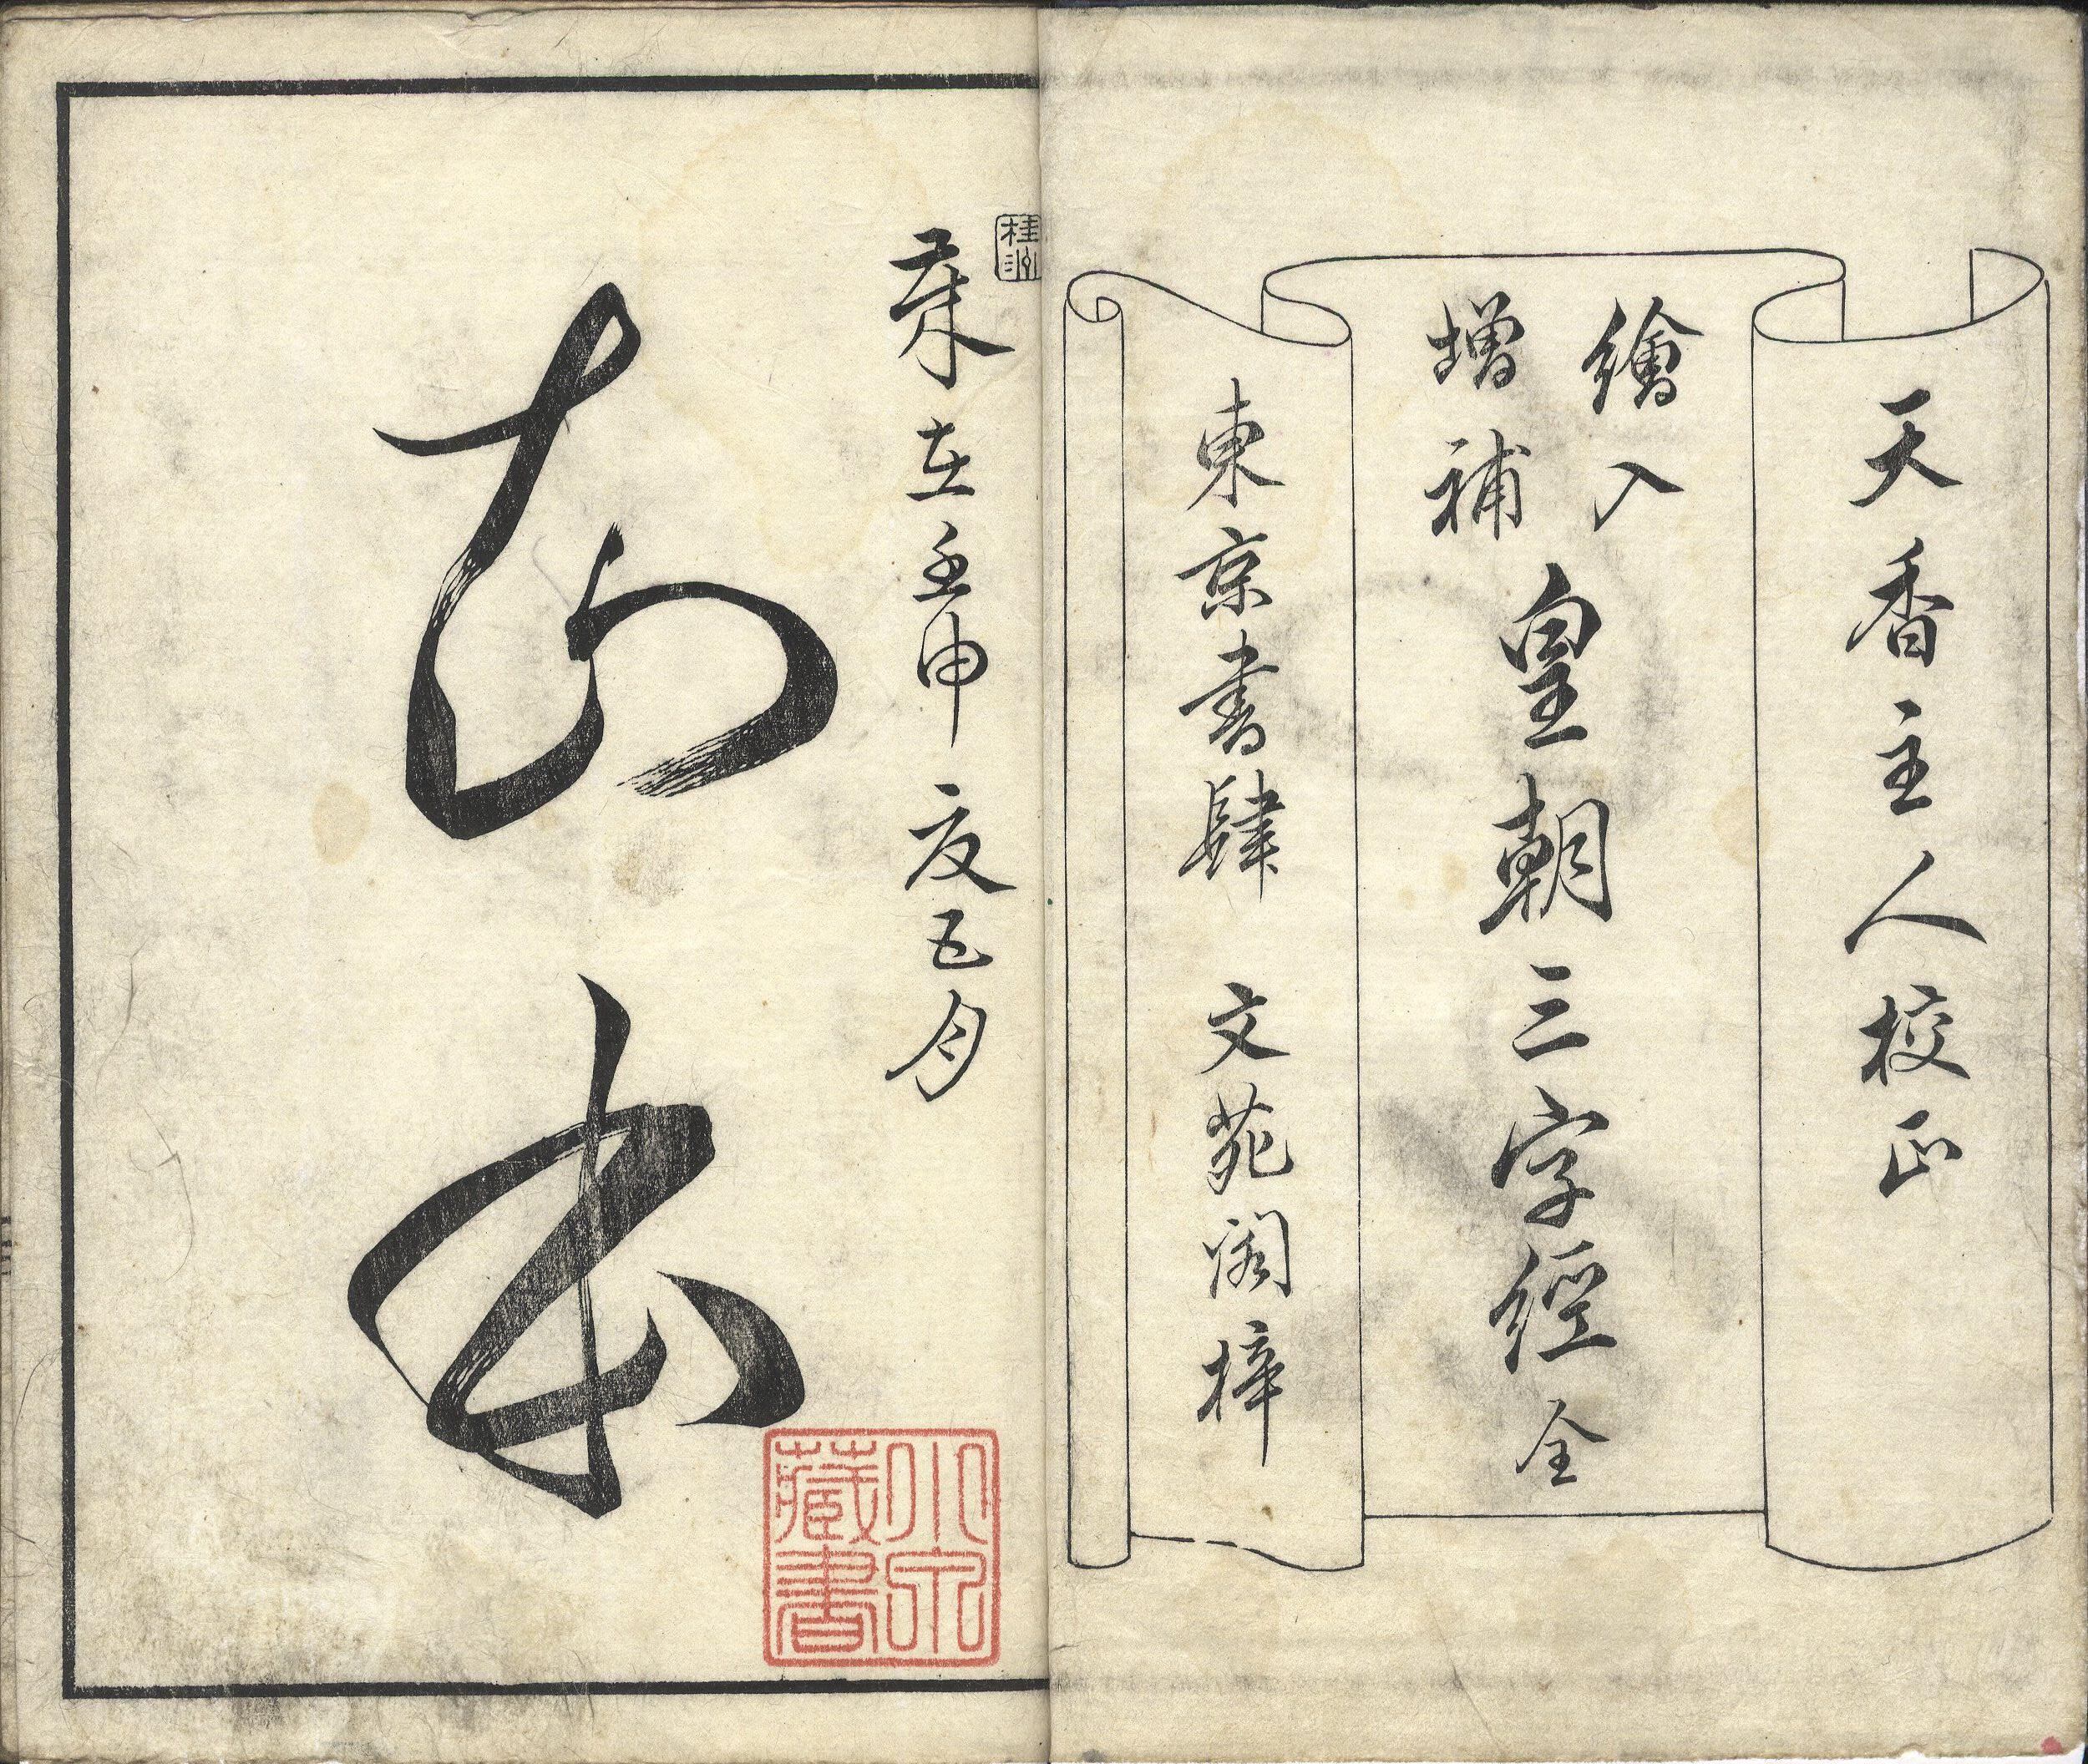 天香主人校正
繪入
增補
皇朝三字經 全
東京書肆 文苑閣梓
歳在壬申夏五月
知本
小泉藏書